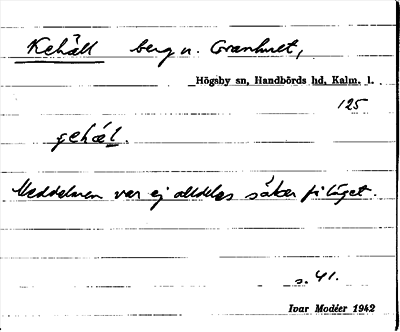 Kehäll berg n. Granhult,
Högsby sn, Handbörds hd, Kalm. l.
125
çehǽl.
Meddelaren var ej alldeles säker på läget.
s. 41.
Ivar Modéer 1942